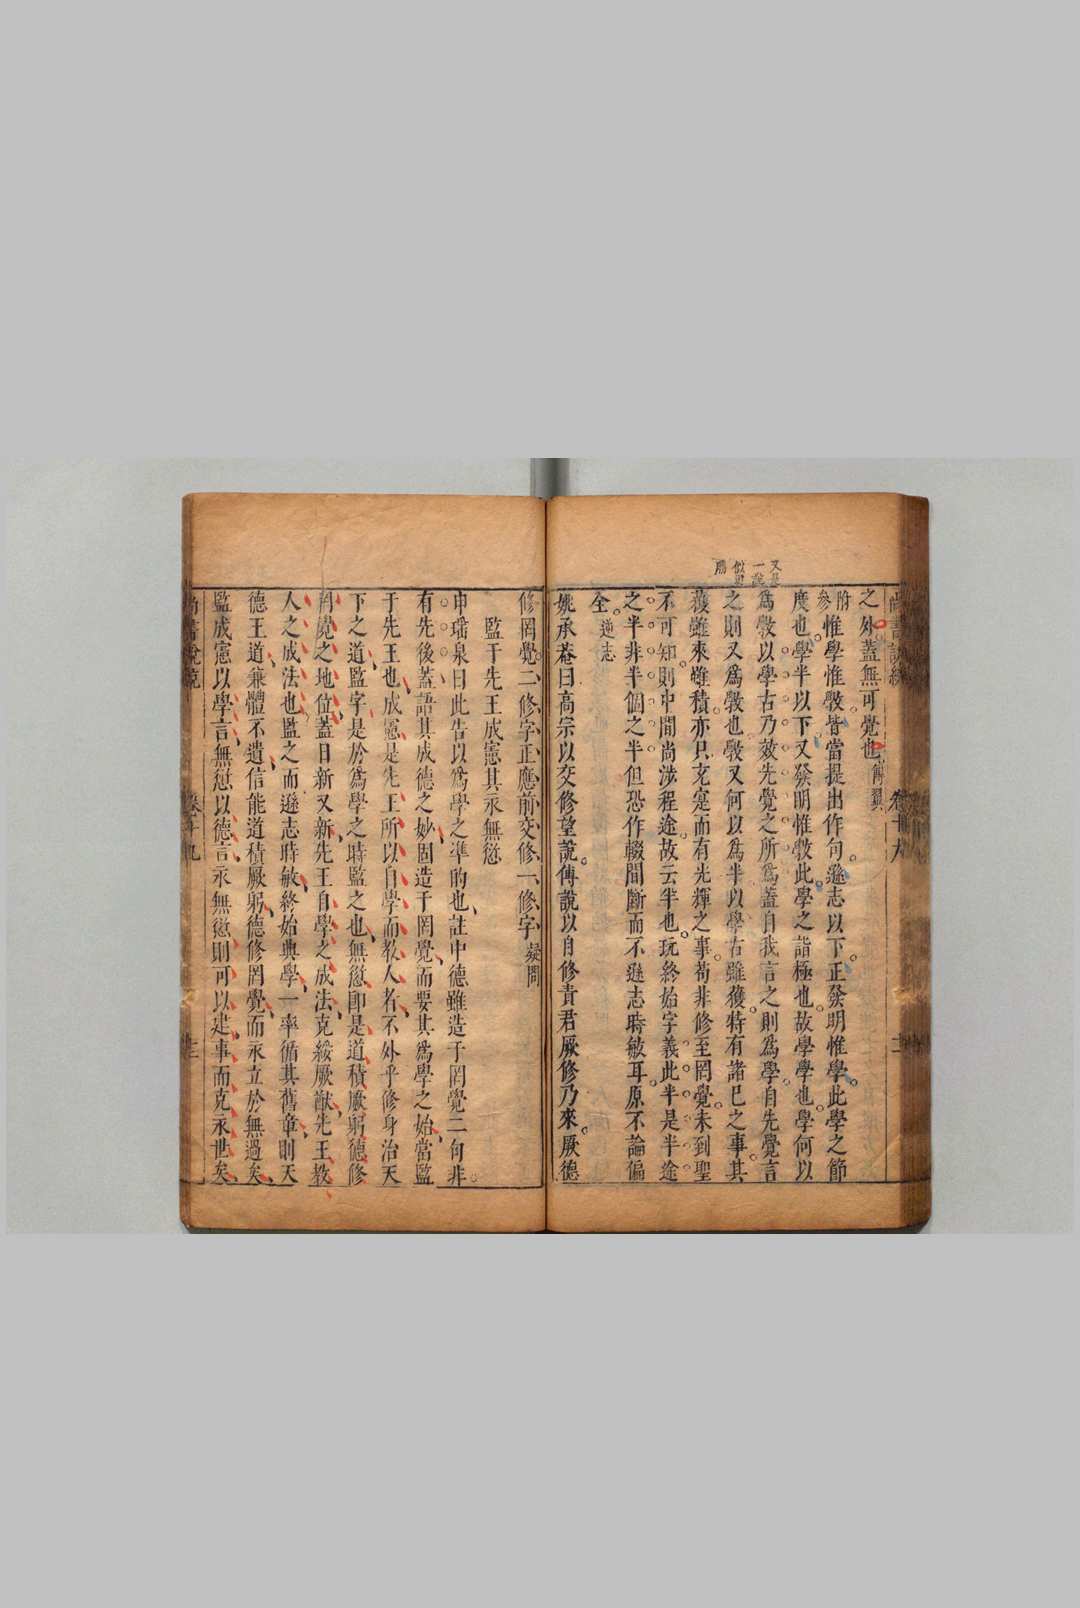 又是
一說
似異
之外蓋無可覺也
附
參
惟學惟斆皆當提出作句遜志以下正發明惟學此學之節
度也學半以下又發明惟斆此學之詣極也故學學也學何以
爲斆以學古乃效先覺之所爲蓋自我言之則爲學自先覺言
之則又爲斆也斆又何以爲半以學古雖獲特有諸己之事其
獲雖來雖積亦只充寔而有光輝之事苟非修至罔覺未到聖
不可知則中間尚涉程途故云半也玩終始字義此半是半途
之半非半個之半但恐作輟間斷而不遜志時敏耳原不論偏
全 遜志
姚承菴曰高宗以交修望說傳說以自修責君厥修乃來厥德
修罔覺二修字正應前交修一修字 疑問
監于先王成憲其永無愆
申瑶泉曰此告以爲學之準的也註中德雖造于罔覺二句非
有先後蓋語其成德之妙固造于罔覺而要其爲學之始當監
于先王也成憲是先王所以自學而教人者不外乎修身治天
下之道監字是於爲學之時監之也無愆卽是道積厥躬德修
罔覺之地位蓋日新又新先王自學之成法克綏厥猷先王教
人之成法也監之而遜志時敏終始典學一率循其舊章則天
德王道兼體不遺信能道積厥躬德修罔覺而永立於無過矣
監成憲以學言無愆以德言永無愆則可以建事而克永世矣
卷十九